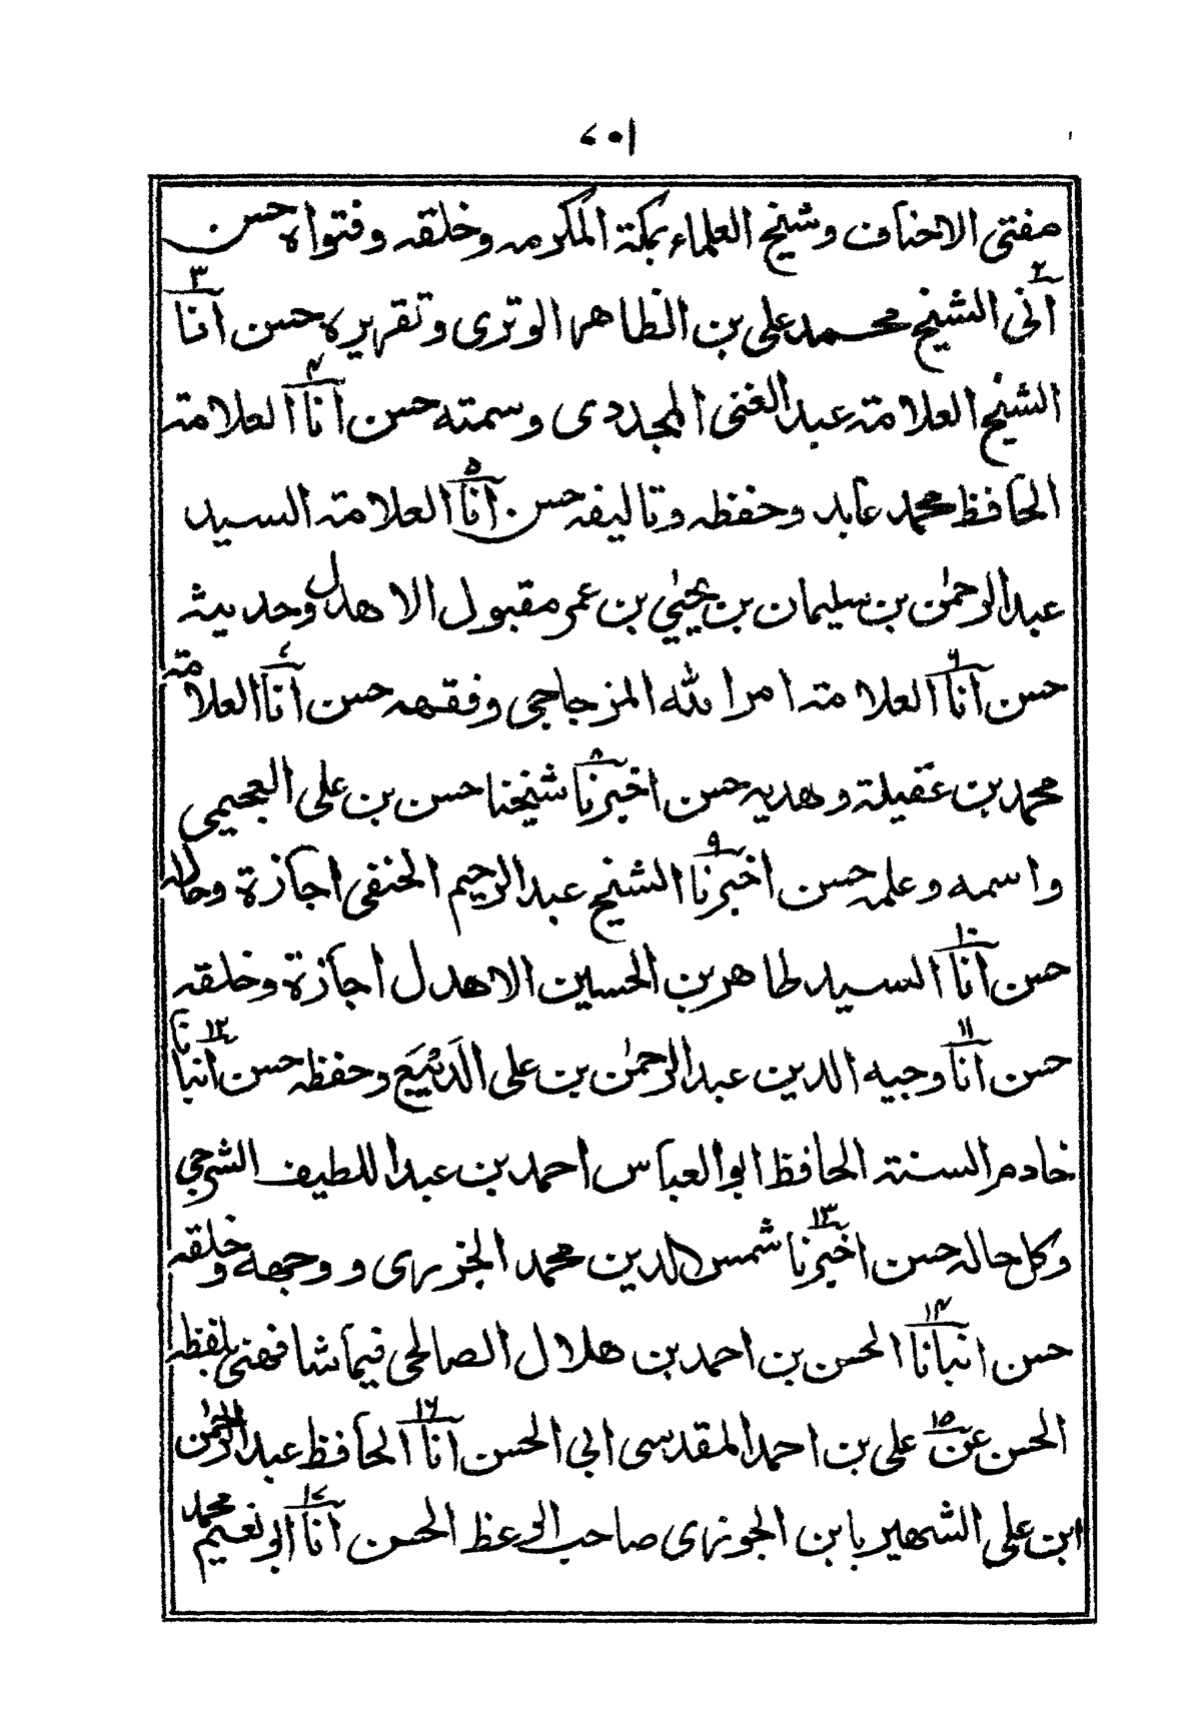 ۷۰۱
مفتی الاحناف وشیخ العلماء بمکة المکرمه وخلقه وفتواه حسن
۲ انی الشیخ محمد علی بن الظاهر الوتری وتقریره حسن ۳ انا
الشیخ العلامة عبد الغنی المجددی وسمته حسن ۴ انا العلامة
الحافظ محمد عابد وحفظه وتالیفه حسن ۵ انا العلامة السید
عبد الرحمٰن بن سلیمان بن یحیٰی بن عمر مقبول الاهدل وحدیثه
حسن ۶ انا العلامة امر الله المزجاجی وفقهه حسن ۷ انا العلامة
محمد بن عقیلة وهدیه حسن ۸ اخبرنا شیخنا حسن بن علی العجیمی
واسمه وعلمه حسن ۹ اخبرنا الشیخ عبد الرحیم الحنفی اجازة وحاله
حسن ۱۰ انا السید طاهر بن الحسین الاهدل اجازة وخلقه
حسن ۱۱ انا وجیه الدین عبد الرحمٰن بن علی الدَیْبَع وحفظه حسن ۱۲ انبانا
خادم السنة الحافظ ابو العباس احمد بن عبد اللطیف الشرجی
وکل حاله حسن ۱۳ اخبرنا شمس الدین محمد الجزری ووجهه وخلقه
حسن ۱۴ انبانا الحسن بن احمد بن هلال الصالحی فیما شافهنی بلفظه
الحسن ۱۵ عن علی بن احمد المقدسی ابی الحسن ۱۶ انا الحافظ عبد الرحمٰن
ابن علی الشهیر بابن الجوزی صاحب الوعظ الحسن ۱۷ انا ابو نعیم محمد